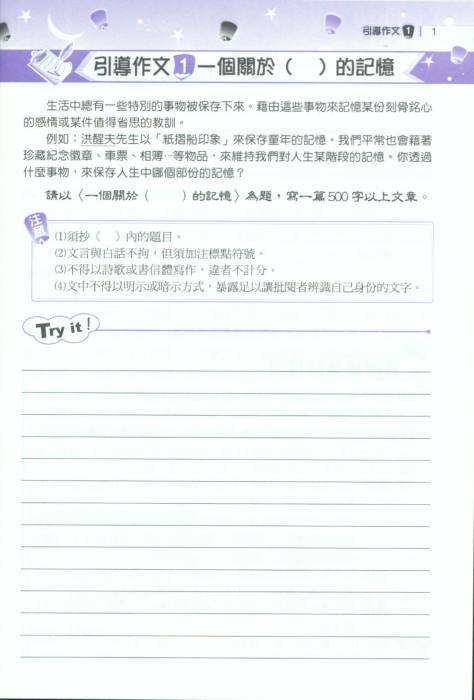 引導作文 1 | 1
引導作文 1 一個關於（ ）的記憶
生活中總有一些特別的事物被保存下來。藉由這些事物來記憶某份刻骨銘心
的感情或某件值得省思的教訓。
例如：洪醒夫先生以「紙摺船印象」來保存童年的記憶。我們平常也會藉著
珍藏紀念徽章、車票、相簿…等物品，來維持我們對人生某階段的記憶。你透過
什麼事物，來保存人生中哪個部份的記憶？
請以〈一個關於（ ）的記憶〉為題，寫一篇500字以上文章。
注意
(1)須抄〈 〉內的題目。
(2)文言與白話不拘，但須加注標點符號。
(3)不得以詩歌或書信體寫作，違者不計分。
(4)文中不得以明示或暗示方式，暴露足以讓批閱者辨識自己身份的文字。
Try it!